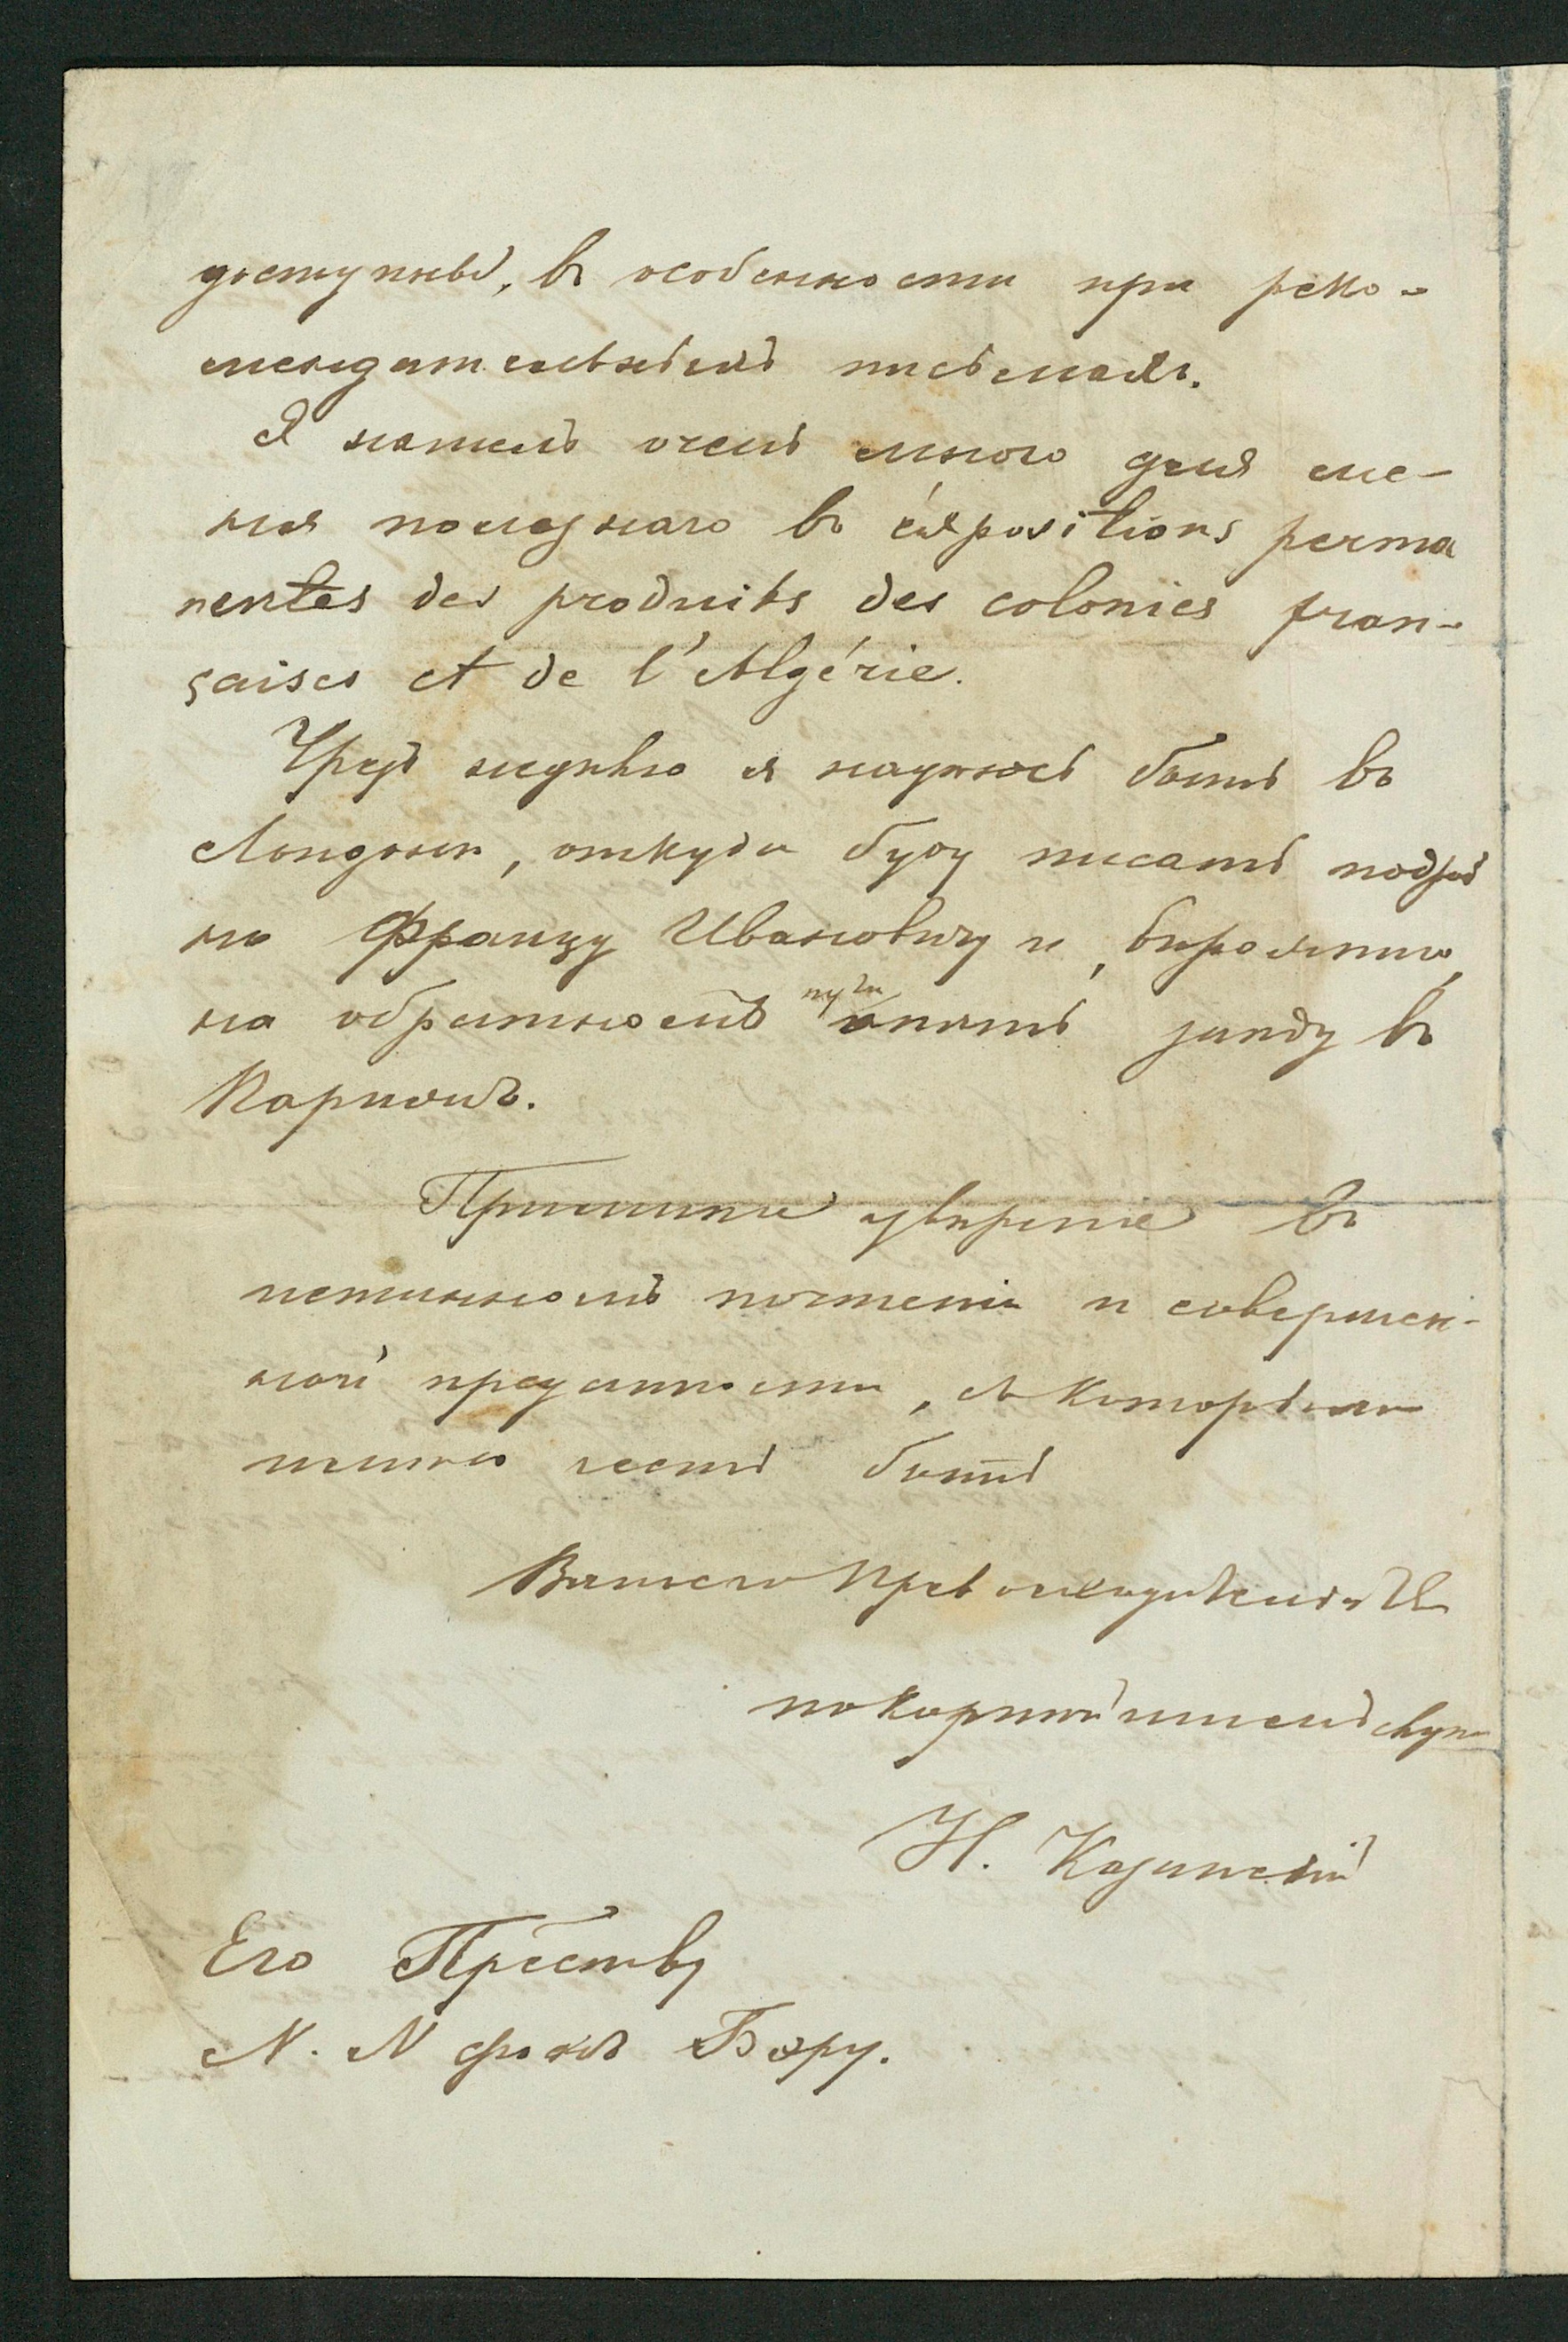 доступны, въ особенности при реко-
мендательныхъ письмахъ.
Я нашелъ очень много для ме-
ня полезнаго въ éxpositions perma
nentes des produits des colonies fran-
çaises et de l'Algérie.
Чрезъ недѣлю я надѣюсь быть въ
Лондонѣ, откуда буду писать подроб
но Францу Ивановичу и, вѣроятно,
на обратномъ пути опять заѣду въ
Парижъ.
Примите увѣреніе въ
истинномъ почтеніи и совершен-
ной преданности, съ которыми
имѣю честь быть
Вашего Превосходительства
покорнѣйшимъ слугою
Н. Казинскій
Его Прест̅ву
N. N фонъ Бэру.